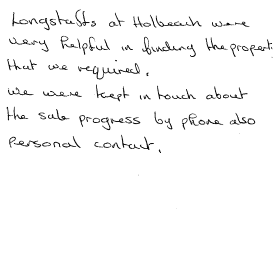 Longstaffs at Holbeach were
very helpful in finding the propert
that we required.
we were kept in touch about
the sale progress by phone also
Personal contact.